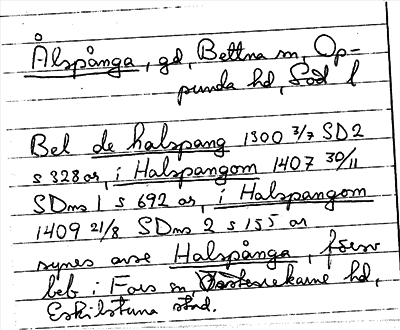 Ålspånga, gd, Bettna sn, Op-
punda hd, Söd l
Bel de halspang 1300 3/7 SD2
s 328 or, i Halspangom 1407 30/11
SDns 1 s 692 or, i Halspangom
1409 21/8 SDns 2 s 155 or
synes avse Halspånga, försv
beb i Fors sn, hd,
Eskilstuna stad.